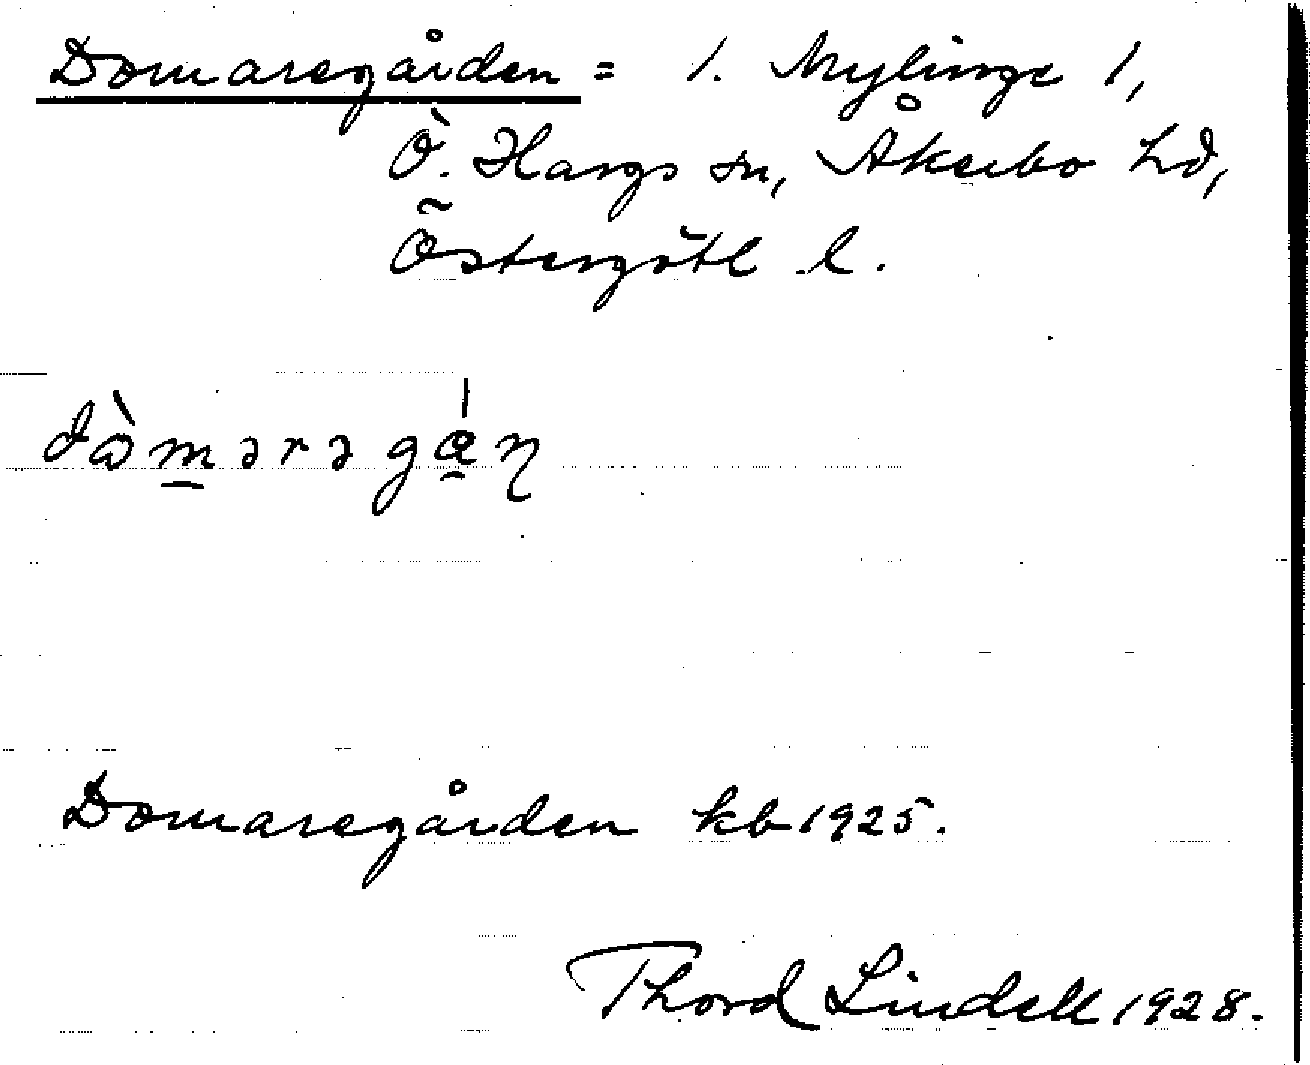 Domaregården = 1. Mylinge 1,
Ö. Hargs sn, Åkerbo hd,
Östergötl l.
dòmərəgån
Domaregården kb 1925.
Thord Lindell 1928.